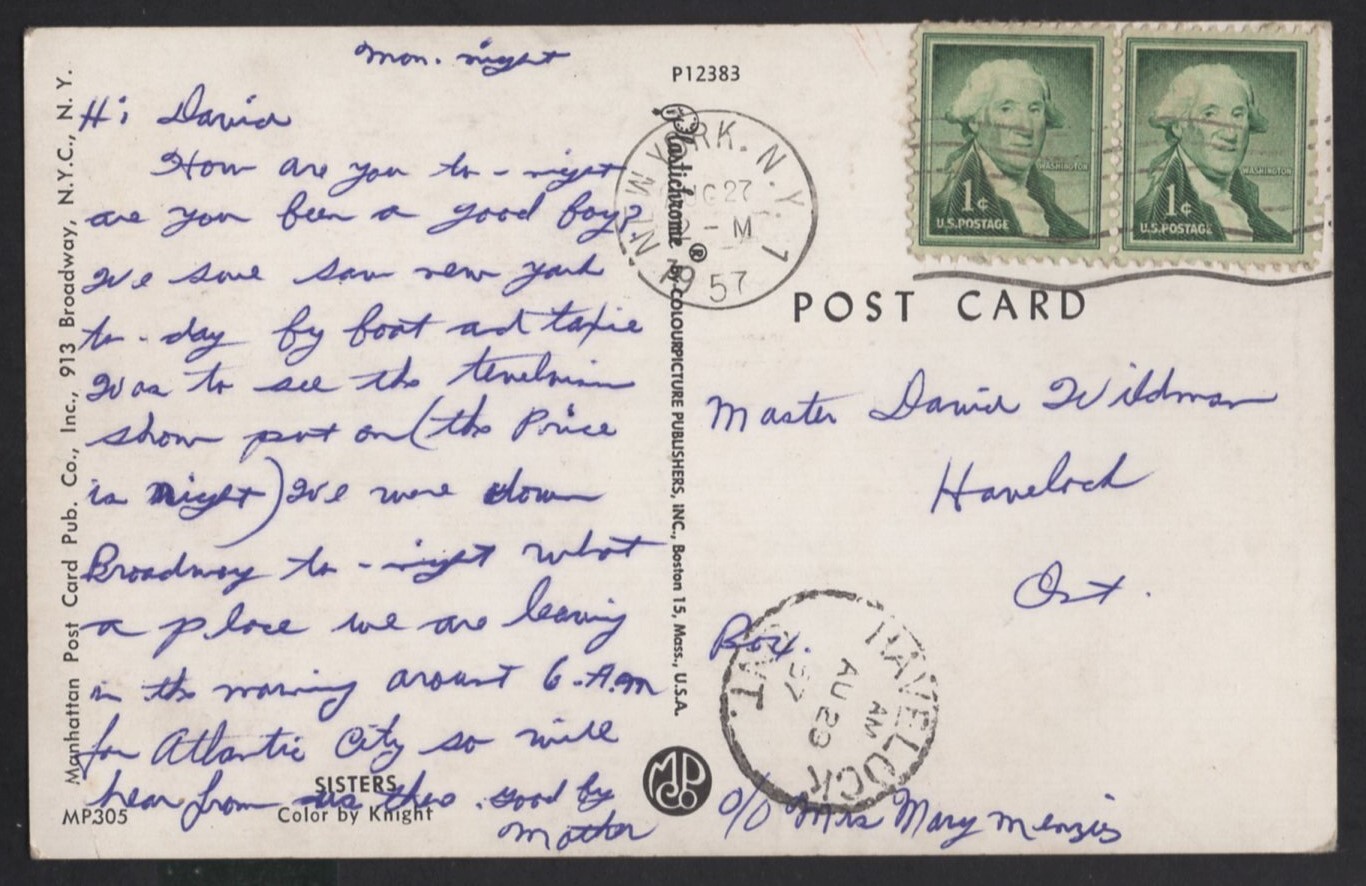 Mon. night
Hi David
How are you to-night
are you been a good boy?
We sure saw new york
to-day by boat and taxie
Was to see the
show put on (the Price
is right) We were down
Broadway to-night what
a place we are leaving
in the morning around 6-A.m
for Atlantic City so will
hear from us there. good by
Mother
SISTERS
Color by Knight
MP305
Manhattan Post Card Pub. Co., Inc., 913 Broadway, N.Y.C., N. Y.
P12383
Plastichrome ® by COLOURPICTURE PUBLISHERS, INC., Boston 15, Mass., U.S.A.
NEW YORK, N.Y. 1
27
M
1957
WASHINGTON
1¢
U.S.POSTAGE
WASHINGTON
1¢
U.S.POSTAGE
POST CARD
Master David Wildman
Havelock
Ont.
Box.
HAVELOCK
AM
AU 29
57
ONT.
c/o Mrs Mary Menzies
MPCo